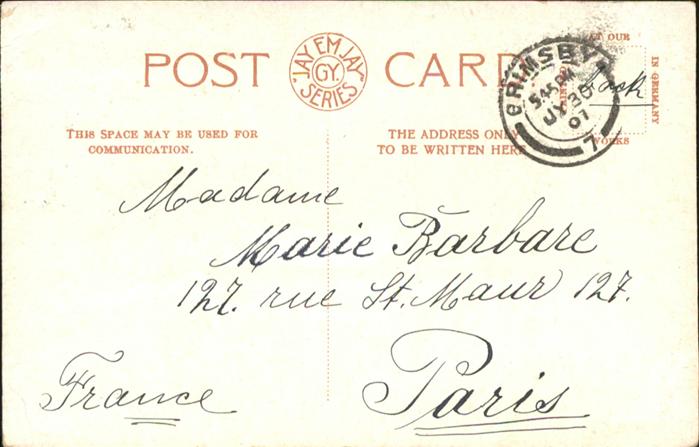 POST CARD
JAY EM JAY
GY.
SERIES
AT OUR
IN GERMANY
WORKS
GRIMSBY
5.45 PM
JY 30
07
7
back
THIS SPACE MAY BE USED FOR
COMMUNICATION.
THE ADDRESS ONLY
TO BE WRITTEN HERE
Madame
Marie Barbare
127. rue St. Maur 127.
France
Paris